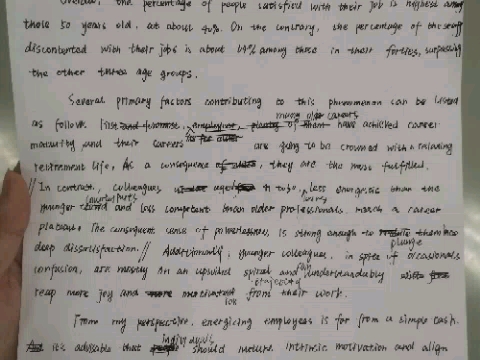 Overall, the percentage of people satisfied with their job is highest among
those 50 years old, at about 40%. On the contrary, the percentage of the staff
discontented with their jobs is about 64% among those in their forties, surpassing
the other three age groups.
Several primary factors contributing to this phenomenon can be listed
as follows. many older careers
First and foremost, employees, of them have achieved career
maturity and their careers are going to be crowned with a
retirement life. As a consequence, they are the most fulfilled.
// In contrast, colleagues aged to less energetic than the
counterparts
younger and less competent than older professionals, reach a career
plateau. The consequent sense of powerlessness, is strong enough to
plunge
deep dissatisfaction. // Additionally, younger colleagues, in spite of occasional
confusion, are mostly on an upward spiral and understandably
trajectory
reap more joy and motivation from their work.
From my perspective, energizing employees is far from a simple task.
individuals
it's advisable that should nurture intrinsic motivation and align